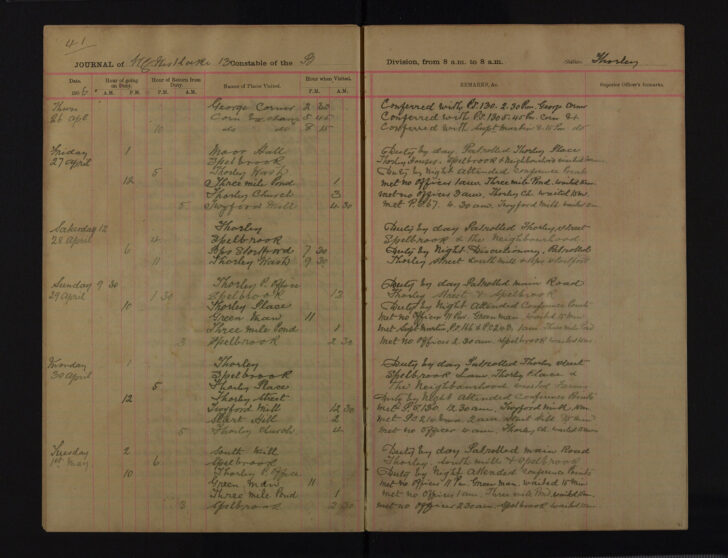 41
JOURNAL of Constable of the B
Date. Hour of going on Duty. Hour of Return from Duty. Name of Place Visited. Hour when Visited.
190 A.M. P.M. P.M. A.M. P.M. A.M.
Thurs George Corner 2 30
26 apl Corn Exchang 5 45
10 do do 8 15
Friday 1 Moor Hall
27 April Spelbrook
5 Thorley Wash
12 Three mile Pond 1
Thorley Church 3
5 Twyford Mill 4 30
Saturday 12 Thorley
28 April 4 Spelbrook
6 Bps Stortford 7 30
11 Thorley Wash 9 30
Sunday 9 30 Thorley P. Office
29 April 1 30 Spelbrook 12
10 Thorley Place
Green Man 11
Three mile Pond 1
3 Spelbrook 2 30
Monday 1 Thorley
30 April Spelbrook
5 Thorley Place
12 Thorley Street
Twyford Mill 12 30
Start Hill 2
5 Thorley Church 4
Tuesday 2 South Mill
1st May 6 Spelbrook
10 Thorley P. Office
Green Man 11
Three mile Pond 1
3 Spelbrook 2 30
Division, from 8 a.m. to 8 a.m. Station Thorley
REMARKS, &c. Superior Officer's Remarks.
Conferred with P.S. 130. 2.30 Pm. George Corner
Conferred with P.C. 130 5.45 Pm. Corn Ex
Conferred with Supt 8.15 Pm do
Duty by day Patrolled Thorley Place
Thorley Houses, Spelbrook & Neighbourhood
Duty by Night Attended Conference Points
met no Officer 1 am. Three mile Pond. waited 10m.
met no Officer 3 am, Thorley Ch. waited 10m.
met P.C. 67. 4.30 am. Twyford Mill
Duty by day Patrolled Thorley Street
Spelbrook & the Neighbourhood
Duty by Night Discretionary, Patrolled
Thorley Street South Mill & Bps Stortford
Duty by day Patrolled main Road
Thorley Street & Spelbrook
Duty by Night Attended Conference Points
met no Officer 11 Pm. Green man waited 15 m
met Supt 1 am. Three mile Pond
met no Officer 2.30 am. Spelbrook waited 10m
Duty by day Patrolled Thorley Street
Spelbrook Lane Thorley Place &
The Neighbourhood visited Farms
Duty by Night Attended Conference Points
met P.S. 130. 12.30 am. Twyford Mill
2 am. Start Hill
met no Officer 4 am. Thorley Ch. waited 10m
Duty by day Patrolled main Road
Thorley. South Mills & Spelbrook
Duty by Night Attended Conference Points
met no Officer 11 Pm. Green man. waited 15 m
met no Officer 1 am. Three mile Pond waited 10m
met no Officer 2.30 am. Spelbrook waited 10m